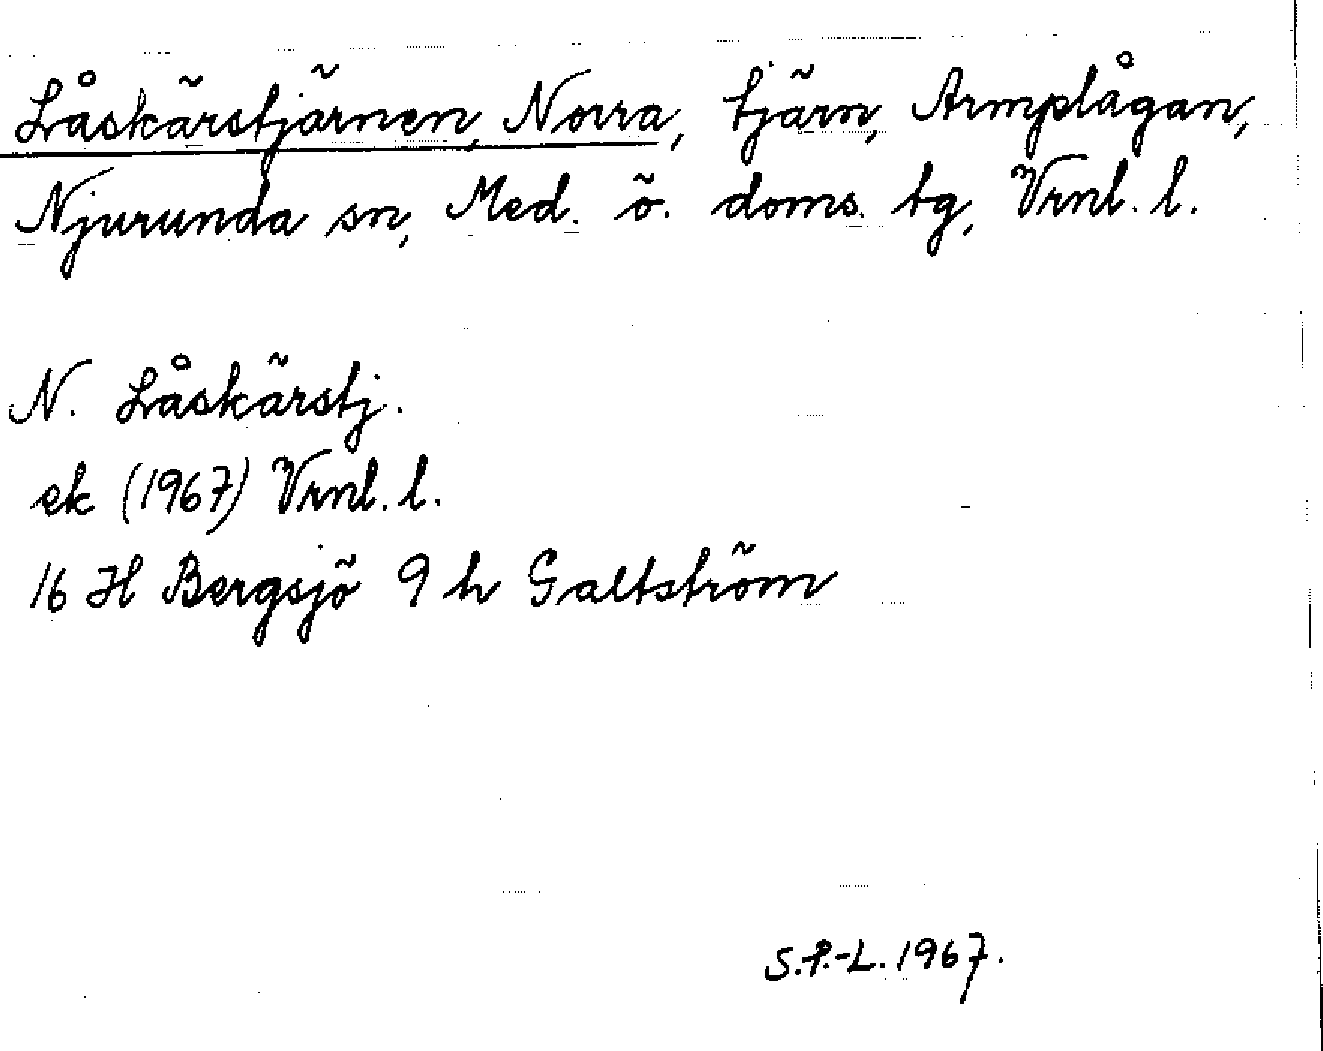 Låskärstjärnen, Norra, tjärn, Armplågan,
Njurunda sn, Med. ö. doms. tg, Vrnl. l.
N. Låskärstj.
ek (1967) Vrnl. l.
16 H Bergsjö 9 h Galtström
S.P.-L. 1967.